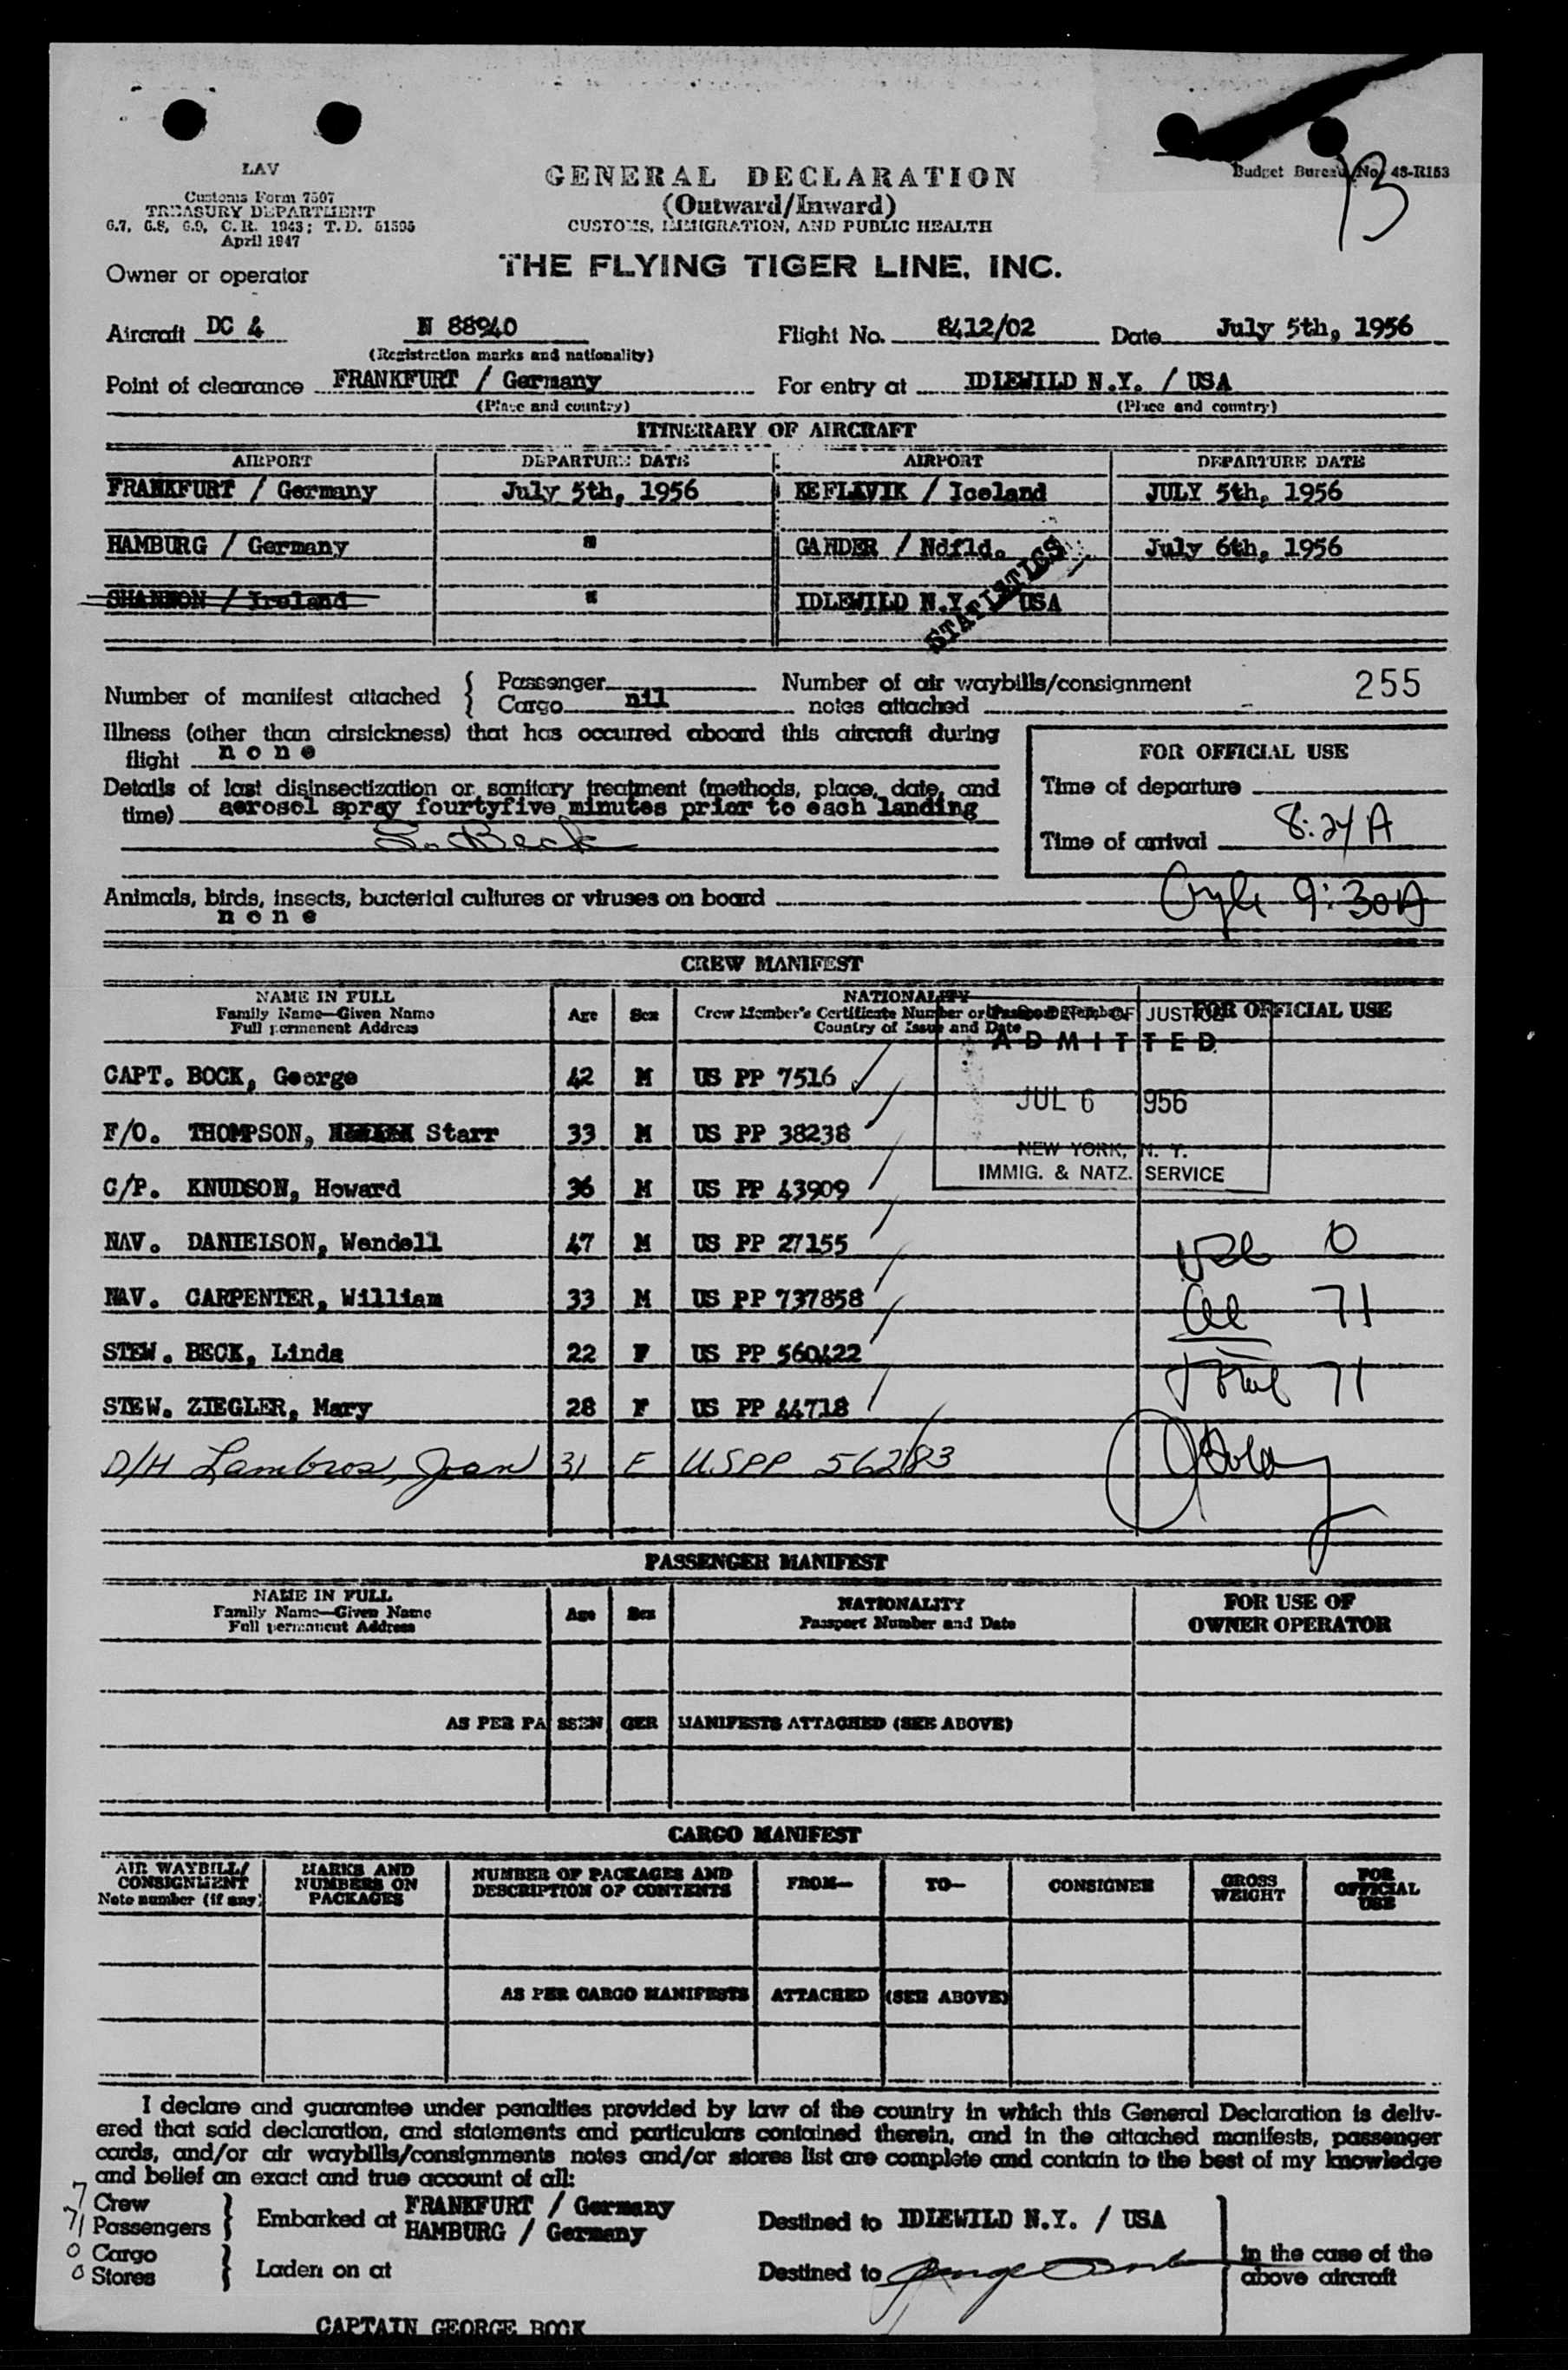 LAV
Customs Form 7507
TREASURY DEPARTMENT
6.7, 6.8, 6.9, C.R. 1943; T.D. 51595
April 1947
GENERAL DECLARATION
(Outward/Inward)
CUSTOMS, IMMIGRATION, AND PUBLIC HEALTH
Budget Bureau No. 48-R153
13
Owner or operator
THE FLYING TIGER LINE, INC.
Aircraft DC 4 N 88940 Flight No. 8412/02 Date July 5th, 1956
(Registration marks and nationality)
Point of clearance FRANKFURT / Germany For entry at IDLEWILD N.Y. / USA
(Place and country) (Place and country)
ITINERARY OF AIRCRAFT
AIRPORT DEPARTURE DATE AIRPORT DEPARTURE DATE
FRANKFURT / Germany July 5th, 1956 KEFLAVIK / Iceland JULY 5th, 1956
HAMBURG / Germany " GANDER / Ndfld. July 6th, 1956
SHANNON / Ireland " IDLEWILD N.Y. USA
STATISTICS
Number of manifest attached { Passenger Number of air waybills/consignment 255
Cargo nil notes attached
Illness (other than airsickness) that has occurred aboard this aircraft during
flight none
FOR OFFICIAL USE
Details of last disinsectization or sanitary treatment (methods, place, date, and
time) aerosol spray fourtyfive minutes prior to each landing
L. Beck
Time of departure
Time of arrival 8:24 A
Animals, birds, insects, bacterial cultures or viruses on board
none
9:30A
CREW MANIFEST
NAME IN FULL
Family Name—Given Name
Full permanent Address
Age Sex
NATIONALITY
Crew Member's Certificate Number or Passport Number
Country of Issue and Date
FOR OFFICIAL USE
DEPT. OF JUSTICE
ADMITTED
JUL 6 1956
NEW YORK, N. Y.
IMMIG. & NATZ. SERVICE
CAPT. BOCK, George 42 M US PP 7516
F/O. THOMPSON, Starr 33 M US PP 38238
C/P. KNUDSON, Howard 36 M US PP 43909
NAV. DANIELSON, Wendell 47 M US PP 27155 0
NAV. CARPENTER, William 33 M US PP 737858 71
STEW. BECK, Linda 22 F US PP 560422 71
STEW. ZIEGLER, Mary 28 F US PP 44718
D/H Lambros, Joan 31 F USPP 56283
PASSENGER MANIFEST
NAME IN FULL
Family Name—Given Name
Full permanent Address
Age Sex
NATIONALITY
Passport Number and Date
FOR USE OF
OWNER OPERATOR
AS PER PASSENGER MANIFESTS ATTACHED (SEE ABOVE)
CARGO MANIFEST
AIR WAYBILL/
CONSIGNMENT
Note number (if any)
MARKS AND
NUMBERS ON
PACKAGES
NUMBER OF PACKAGES AND
DESCRIPTION OF CONTENTS
FROM— TO— CONSIGNEE
GROSS
WEIGHT
FOR
OFFICIAL
USE
AS PER CARGO MANIFESTS ATTACHED (SEE ABOVE)
I declare and guarantee under penalties provided by law of the country in which this General Declaration is deliv-
ered that said declaration, and statements and particulars contained therein, and in the attached manifests, passenger
cards, and/or air waybills/consignments notes and/or stores list are complete and contain to the best of my knowledge
and belief an exact and true account of all:
7 Crew
71 Passengers } Embarked at FRANKFURT / Germany
HAMBURG / Germany
Destined to IDLEWILD N.Y. / USA
0 Cargo
0 Stores } Laden on at
Destined to George Bock
in the case of the
above aircraft
CAPTAIN GEORGE BOCK